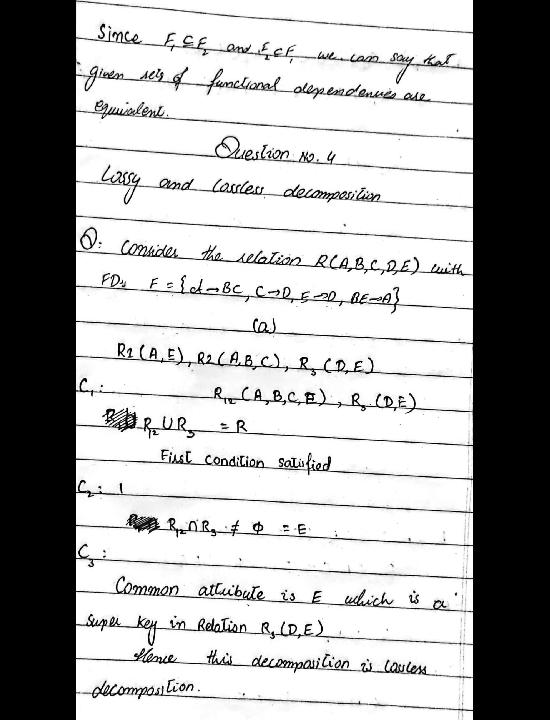 Since F₁ ⊆ F₂ and F₂ ⊆ F₁ we can say that
given sets of functional dependencies are
equivalent.
Question No. 4
Lossy and Lossless decomposition
Q: Consider the relation R(A,B,C,D,E) with
FDs F = {A→BC, C→D, E→D, BE→A}
(a)
R1(A,E), R2(A,B,C), R₃(D,E)
C₁:
R₁₂(A,B,C,E), R₃(D,E)
R₁₂ U R₃ = R
First condition satisfied
C₂:
R₁₂ ∩ R₃ ≠ Φ = E
C₃:
Common attribute is E which is a
Super Key in Relation R₃(D,E)
Hence this decomposition is lossless
decomposition.